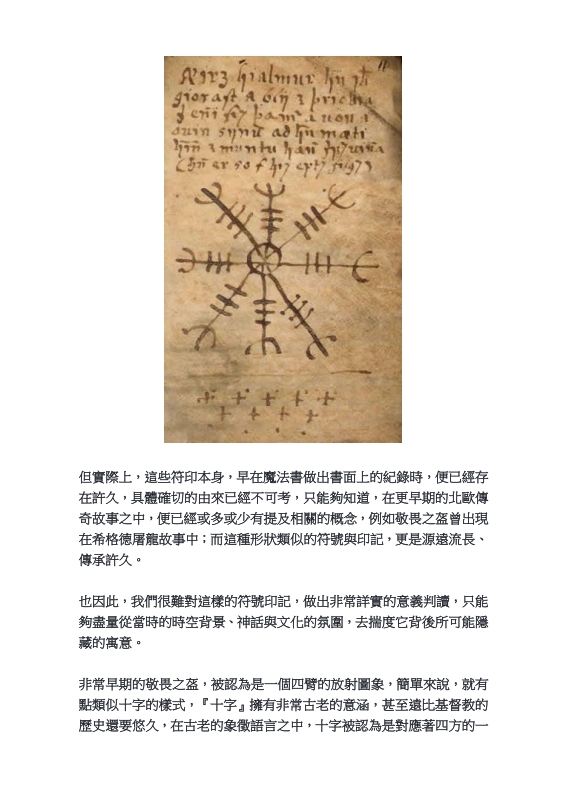 但實際上，這些符印本身，早在魔法書做出書面上的紀錄時，便已經存
在許久，具體確切的由來已經不可考，只能夠知道，在更早期的北歐傳
奇故事之中，便已經或多或少有提及相關的概念，例如敬畏之盔曾出現
在希格德屠龍故事中；而這種形狀類似的符號與印記，更是源遠流長、
傳承許久。
也因此，我們很難對這樣的符號印記，做出非常詳實的意義判讀，只能
夠盡量從當時的時空背景、神話與文化的氛圍，去揣度它背後所可能隱
藏的寓意。
非常早期的敬畏之盔，被認為是一個四臂的放射圖象，簡單來說，就有
點類似十字的樣式，『十字』擁有非常古老的意涵，甚至遠比基督教的
歷史還要悠久，在古老的象徵語言之中，十字被認為是對應著四方的一